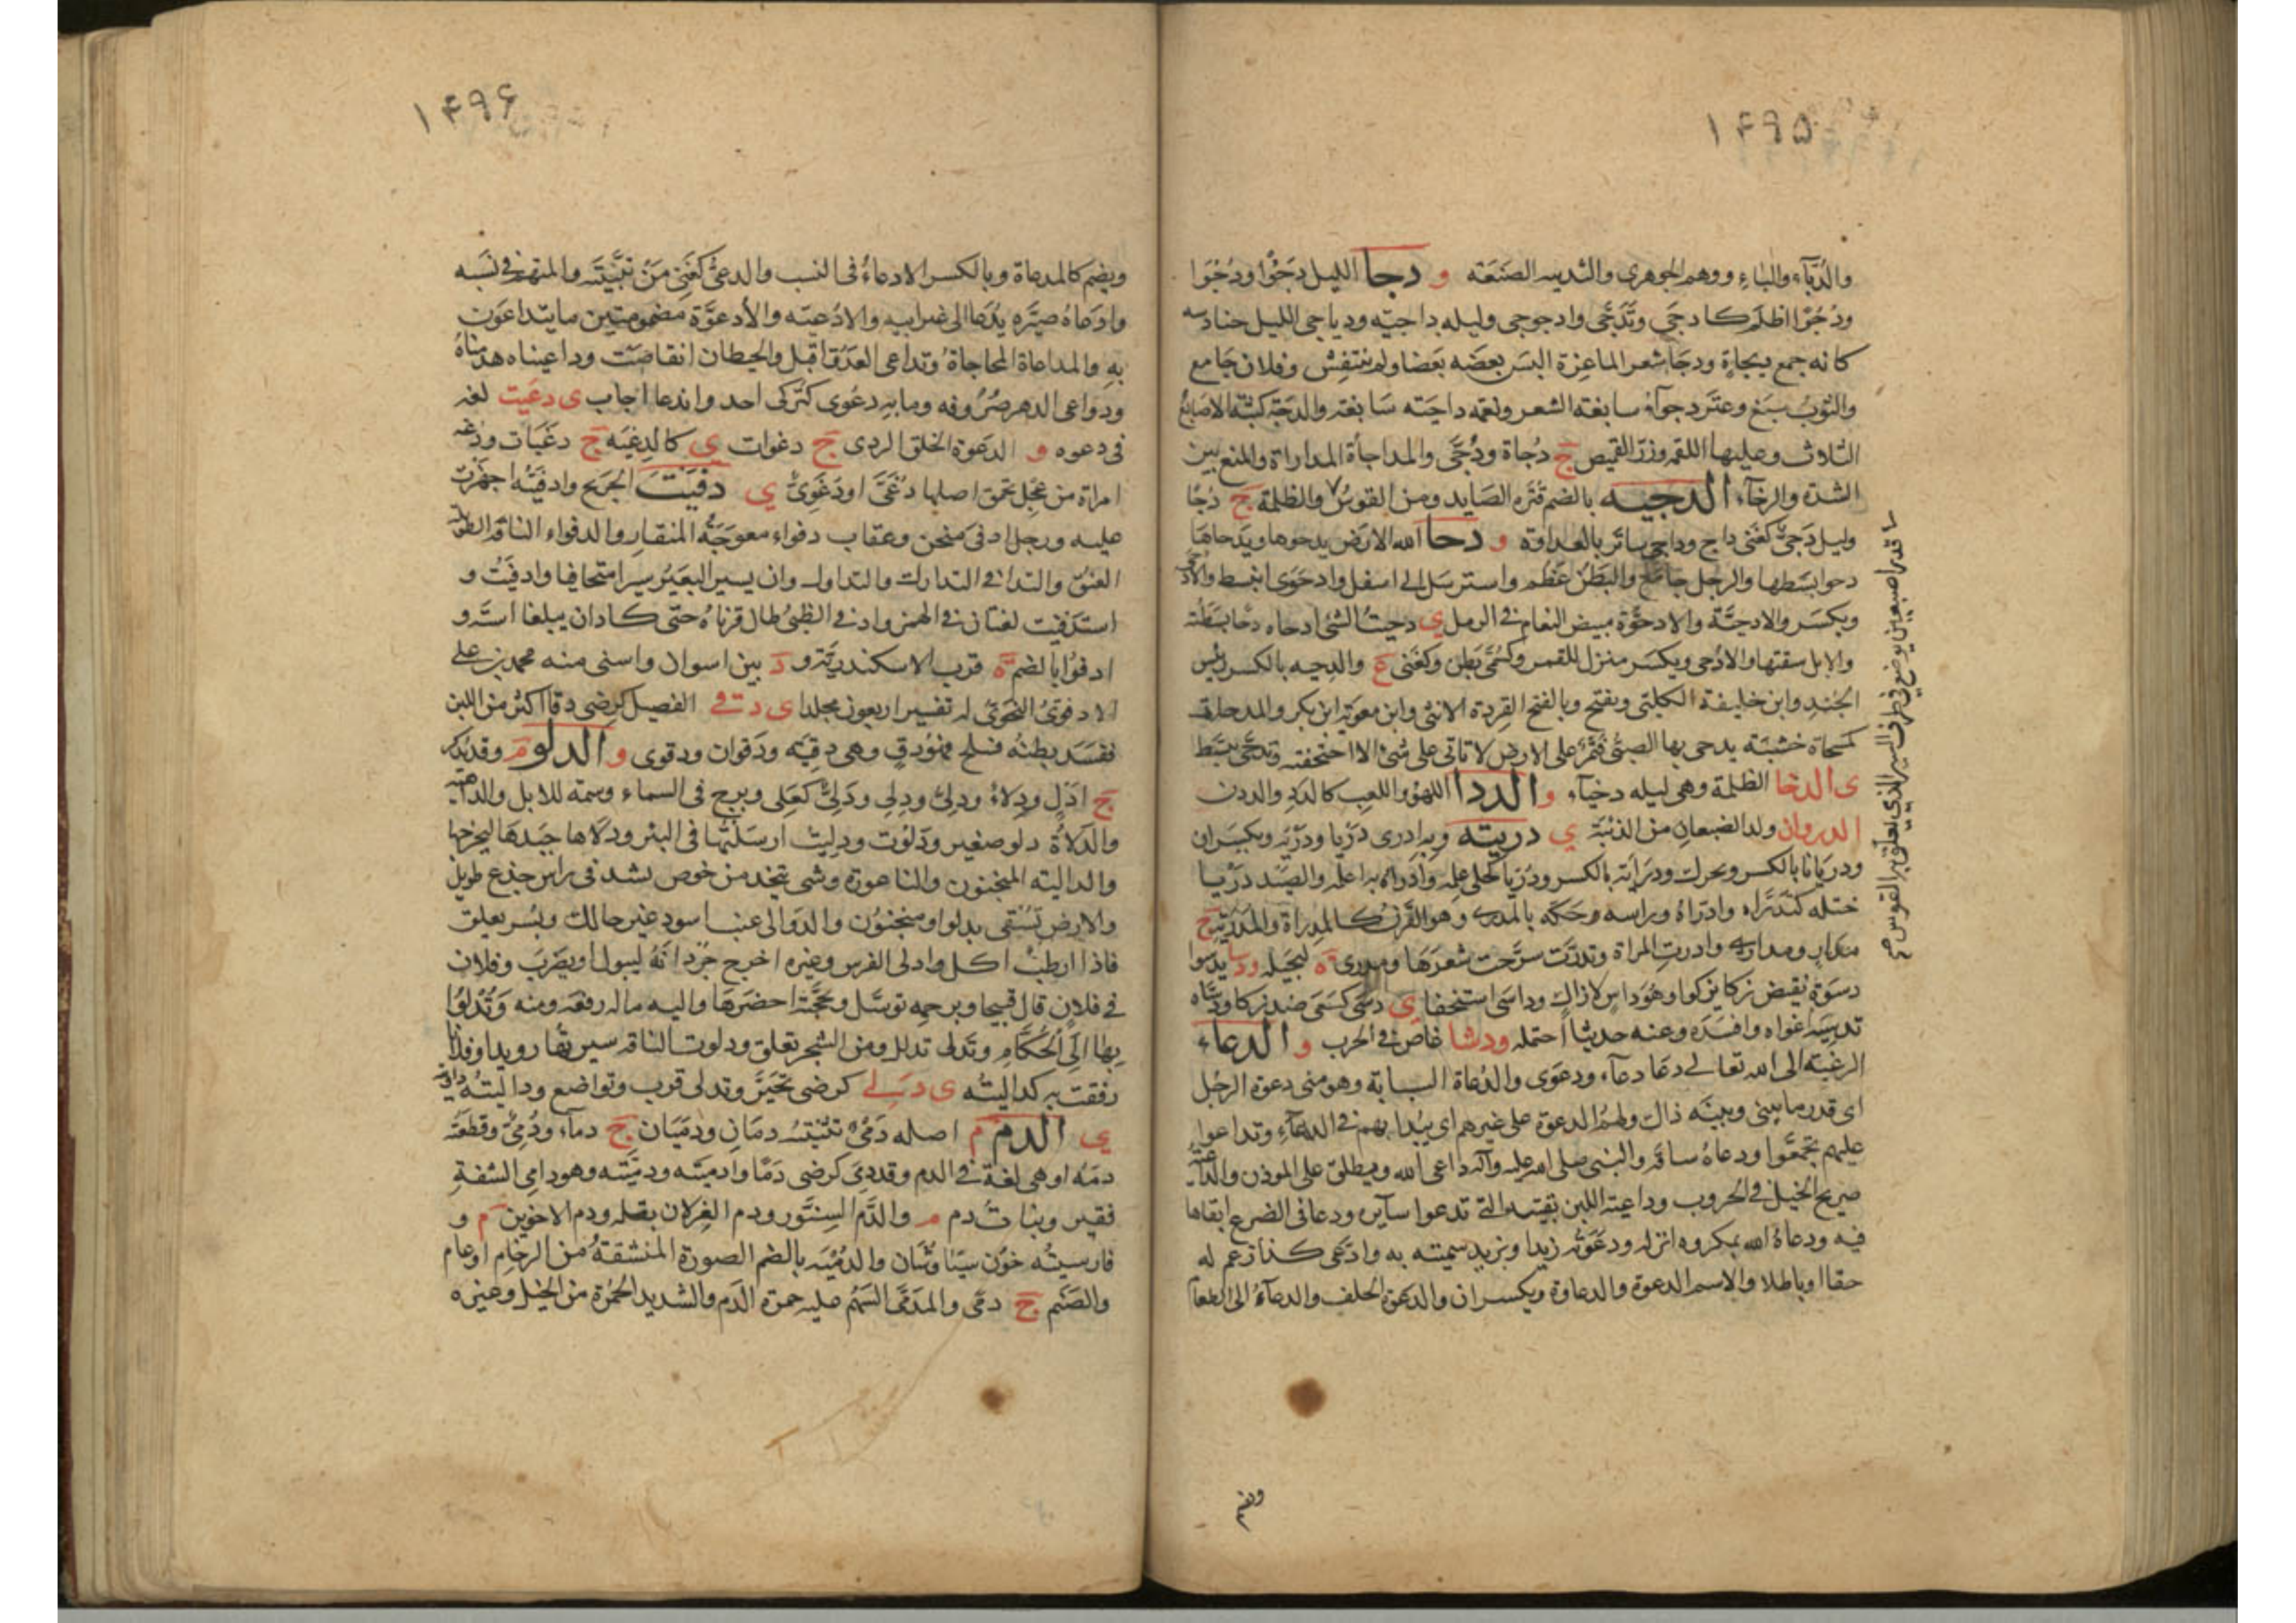 ۱۴۹۵
والدُّبَّاء والباءِ ووهم الجوهرى والتدبيه الصَنعَة و دجا الليل دَجْوًا ودُجُوّا
ودُجُوّا اظلم كادجَى وتَدَجَّى وادجوجى وليله داجيّه ودياجى الليل حنادسه
كانه جمع ديجاةٍ ودجَا شعر الماعِزة البسَ بعضَه بَعضا ولم ينتفِش وفلان جَامع
والثوبُ سبَغ وعَنَز دجوآء سابغة الشعر ونعمه داجيَته سَابغة والدجَة كثبَة الاصَابع
الثلاث وعليها اللقمه وزرّ القميص ج دُجاة ودُجًى والمداجأة المداراة والمنع بين
الشدّة والرخآء الدجيه بالضم قُتره الصَايد ومن القوسِ والظلمة ج دُجًا
وليل دَجِىٌّ كغَنى داج وداجى ساتَر بالعداوة و دحا الله الارض يدحوها ويَدحاهَا
دحوا بسَطها والرجل جامَع والبَطنُ عَظُم واسترسَل الى اسفل وادحَوَى انبسط والادحىّ
ويكسَر والادحيّة والادحوّة مبيض النعام فى الرمل ى دحيتُ الشئ ادحاه دحًا بسَطته
والابل سقتها والادُحى ويكسَر منزل للقمر وكسُمَىّ بَطن وكغَنى ع والدحيه بالكسر رئيس
الجُندِ وابن خليفة الكلبىّ ويفتح وبالفتح القردة الانثى وابن معوية ابن بكر والمدحاة
كمسحاة خشبَة يدحى بها الصبىّ فَتمرُّ على الارض لا تاتى على شئ الا اجتحفته وتدحّى تبسّط
ى الدخا الظلمة وهى ليله دخيآء و الددا اللهو واللعِب كالدَدِ والددن
الدروان ولد الضبعان من الذئبَة ى دريته وبه ادرى دَرْيا ودرْيَه ويكسَران
ودرَيانا بالكسر ويحرك ودرَايَة بالكسر ودُرِيا كحلى علمه وادراه به اعلمه والصَيد دَرْيا
ختله كتدَرَّاه وادّراهُ وراسه وحَكّه بالمدرى وهو القَرن كالمِدراة والمَدرَية ج
مدارٍ ومدارى وادرتِ المراة وتدرّت سرَّحت شعرَهَا ومدرى ة لبجَيله ودسا يدسُوا
دسَوَة نقيض زكا يزكوا وهُوَ داسٍ لا زاكٍ وداسَى استخفا ى دسَى كسَعَى ضد زكا ودسَّاه
تدسيَة اغواه وافسَدَه وعنه حديثا احتمله ودشا غاص فى الحرب و الدعاء
الرغبَة الى الله تعالى دعَا دعآء ودعوَى والدُعاة السبابة وهو منى دعوة الرجُل
اى قدر ما بينى وبينَه ذاك ولهمُ الدعوة على غيرهم اى يُبدا بهم فى الدعآءِ وتداعوا
عليهم تجمَّعُوا ودعاهُ ساقَه والنبى صلى الله عليه وآله داعى الله ويطلق على الموذن والداعيَة
صريح الخيل فى الحروب وداعية اللبن بقيته التى تدعوا سآيره ودعا فى الضرع ابقاها
فيه ودعاهُ الله بمكروه انزله ودعَوتُه زيدا وبزيد سميته به وادّعى كذا زعم له
حقا او باطلا والاسم الدعوة والدعاوة ويكسران والدَعوة الحلف والدعآءُ الى الطعام
قدر اصبعين يوضع فى طرف السير الذى يعلّق به القوس
ويضم
۱۴۹۶
ويضم كالمدعاة وبالكسر الادعاءُ فى النسب والدعىُّ كغَنِىّ مَن تبَنَّيتَه والمتهم فى نسَبه
وادعاهُ صيَّره يدُعَا الى غير ابيه والادُعيَه والأدعوَّة مضمومتين ما يتداعَون
به والمداعاة المحاجاة وتداعى العدوّ اقبل والحيطان انقاضَت وداعيناه هدمناهُ
ودواعى الدهر صُرُوفه وما به دعُوى كتُركى احد واندعا اجاب ى دعَيت لغه
فى دعوه و الدغوة الخلق الردى ج دغوات ى كالدغيَه ج دغَيات ودغه
امراة من عجِل تحمق اصلها دُغَىٌ او دَغَوِىٌّ ى دفَيتَ الجريح وادفيَتُه اجهزت
عليه ورجل ادفى منحن وعقاب دفواء معوجَّةُ المنقار والدفواء الناقه الطويلة
العنق والتدافى التدارك والتداول وان يسير البعَيرُ سيرا متجافيا وادفيَتُ و
استدفيت لغتان فى الهمز وادفى الظبىُ طال قرناهُ حتّى كادان يبلغا استَه و
ادفوُا بالضم ة قرب الاسكندريّة و د بين اسوان واسنى منه محمد بن على
الادفوىّ النحوىّ له تفسير اربعون مجلدا ى دقى الفصيل كرضى دقا اكثر من اللبن
ففسَدَ بطنهُ فسلح فهو دقٍ وهى دقِيَه ودقوان ودقوى و الدلو م وقد يذكر
ج ادلٍ ودِلاءٌ ودِلىٌّ ودِلِى ودَلىً كعَلى وبرج فى السماء وسمة للابل والداهيَة
والدَلاةُ دلو صغير ودَلَوت ودلِيتُ ارسَلتُها فى البئر ودَلَاها جبَذهَا ليخرجها
والداليَة المنجنون والناعورة وشى يتخذ من خوص يشد فى راس جذع طويل
والارض تُسقَى بدلو او منجنُون والدَوالى عنب اسود غير حالك وبُسر يعلق
فاذا ارطبَ اكل وادلى الفرس وغيره اخرج جُردَانَهُ ليبول او يضرَب وفلان
فى فلانٍ قال قبيحا وبرحمِه توسَّل وبحجَّتهِ احضَرَهَا واليه ماله رفعَه ومنه وَتُدْلُوُا
بِهَا الَى الْحُكَّامِ وتَدلى تدلل ومن الشجر تعلق ودلوت الناقه سيرتُها رويدا وفلانا
رفقت به كداليتُه ى دَلِى كرضى تحيَّرَ وتدلى قرب وتواضع وداليتُه داريته
ى الدم م اصله دَمَىٌ تثنيَتُه دمَانِ ودمَيَان ج دمآء ودُمِىٌّ وقطعَتُه
دمَة او هى لغة فى الدم وقد دِىَ كرضى دَمًا وادميَتَه ودميَّته وهو دامى الشفةِ
فقير وبنات دم م والدَّم السِنّور ودم الغِزلان بقله ودم الاخوين م و
فارسيتُه خون سيَاوشَان والدُميَة بالضم الصورة المنقشةُ من الرخام او عام
والصَنَم ج دمًى والمدَمَّى السَهُم عليه حمرة الدَم والشديد الحُمرَة من الخيل وغيره